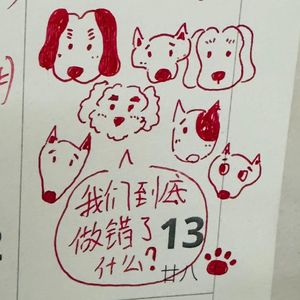 我们到底
做错了
什么?
13
廿八